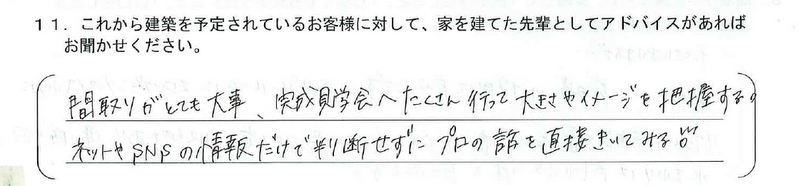 １１．これから建築を予定されているお客様に対して、家を建てた先輩としてアドバイスがあれば
お聞かせください。
間取りがとても大事、完成見学会へたくさん行って大きさやイメージを把握する。
ネットやSNSの情報だけで判断せずにプロの話を直接きいてみる